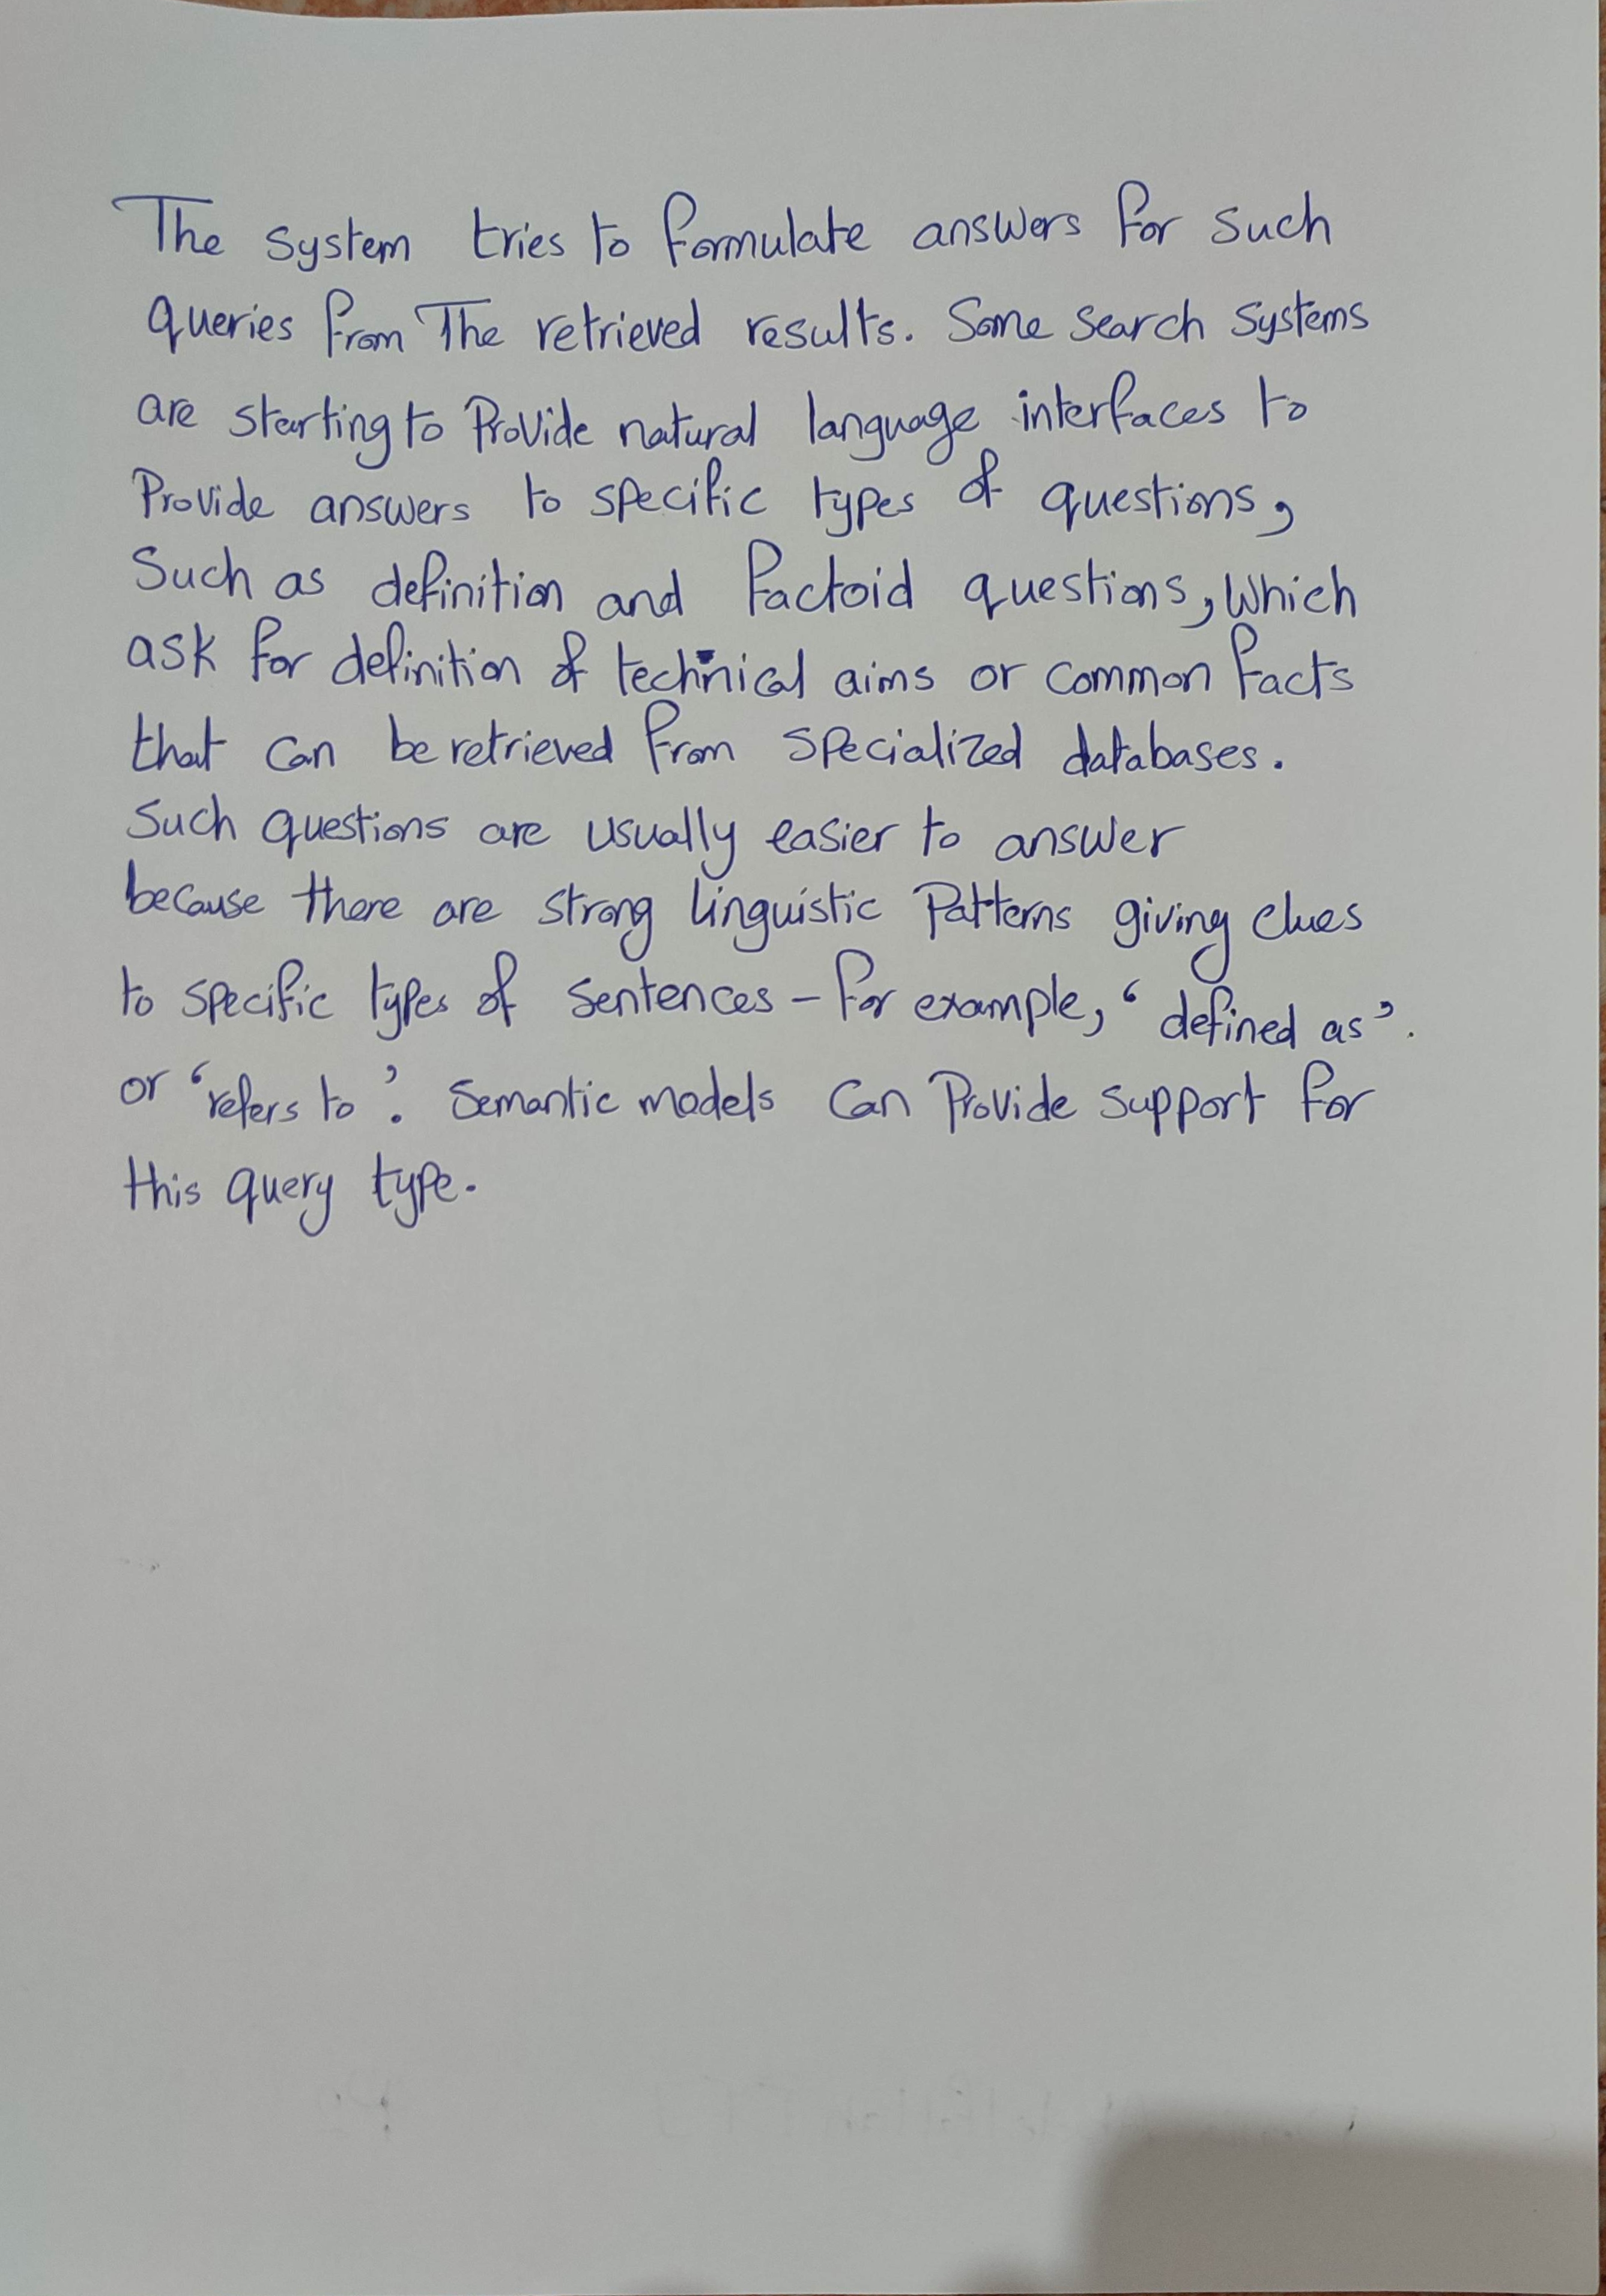 The system tries to formulate answers for such
queries from The retrieved results. Some search systems
are starting to Provide natural language interfaces to
Provide answers to specific types of questions,
Such as definition and factoid questions, Which
ask for definition of technical aims or common facts
that can be retrieved from specialized databases.
Such questions are usually easier to answer
because there are strong linguistic Patterns giving clues
to specific types of sentences - for example, ‘defined as’.
or ‘refers to’. Semantic models can Provide support for
this query type.